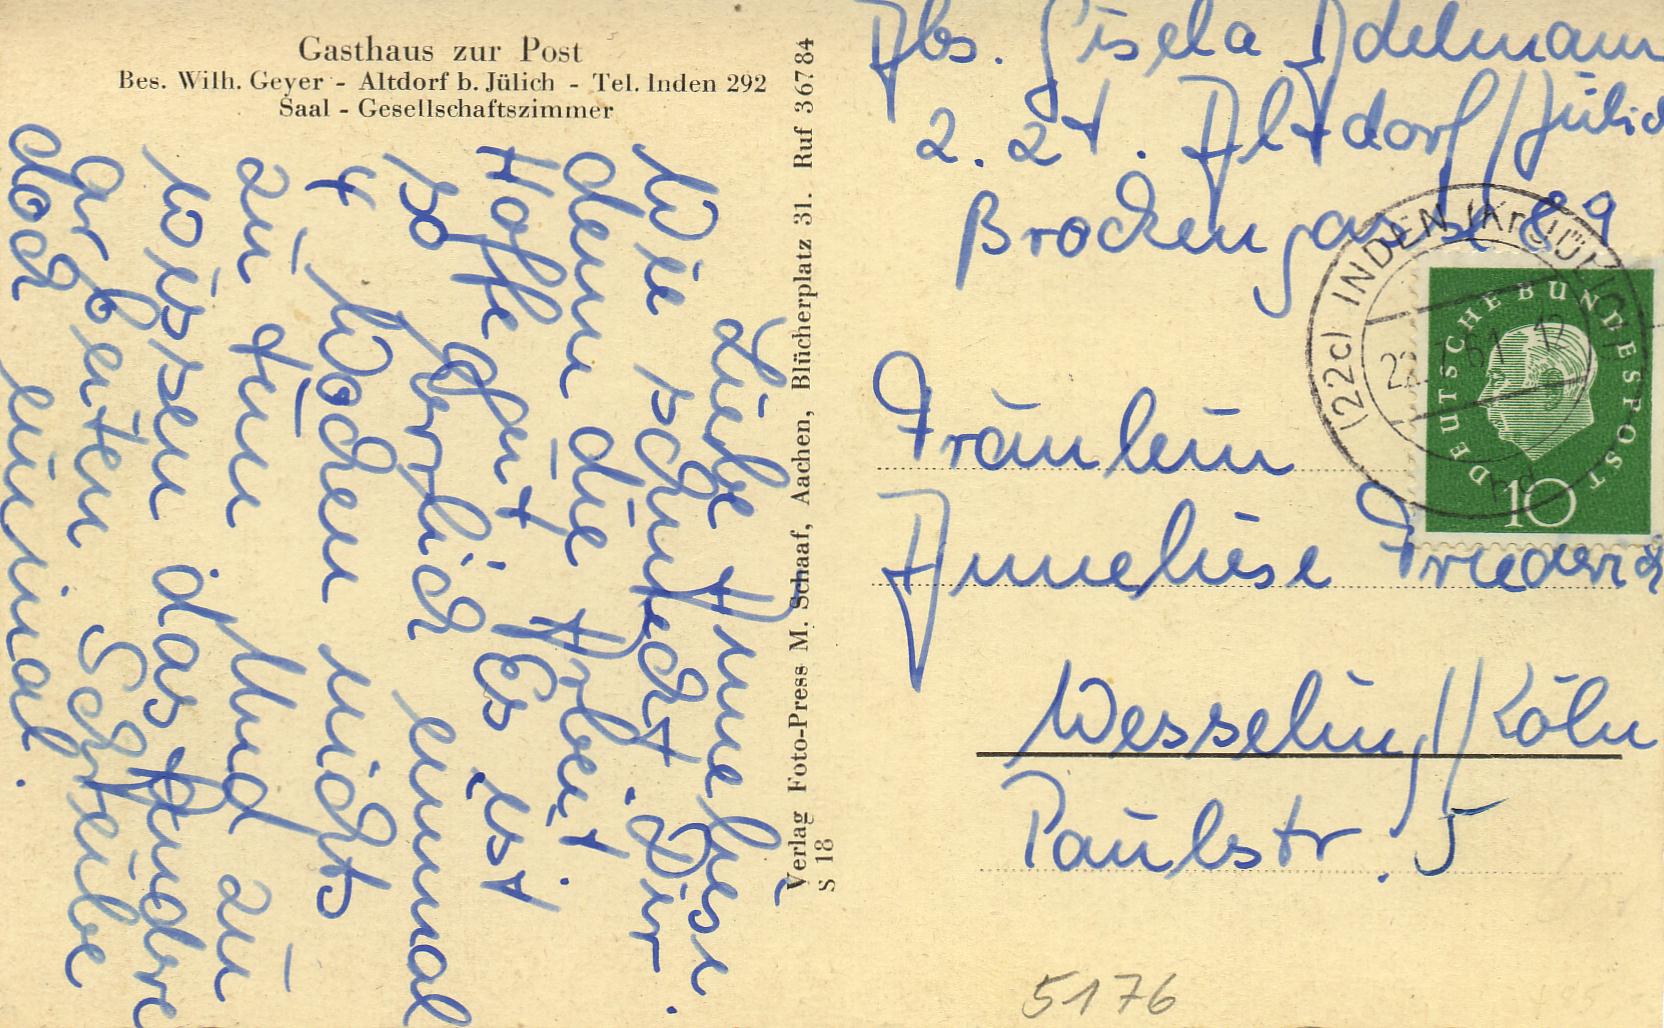 Gasthaus zur Post
Bes. Wilh. Geyer - Altdorf b. Jülich - Tel. Inden 292
Saal - Gesellschaftszimmer
Liebe Anneliese.
Wie schmeckt Dir
denn die Arbeit.
Hoffe gut. Es ist
so herrlich einmal
4 Wochen nichts
zu tun. Und zu
wissen das Andere
arbeiten Schreibe
doch einmal.
Verlag Foto-Press M. Schaaf, Aachen, Blücherplatz 31. Ruf 36784
S 18
Abs. Gisela Adelmann
z. Zt. Altdorf/Jülich
Brockengasse 89
(22c) INDEN (Kr. JÜLICH)
61
12
DEUTSCHE BUNDESPOST
10
Fräulein
Anneliese
Wesseling/Köln
Paulstr. 5
5176